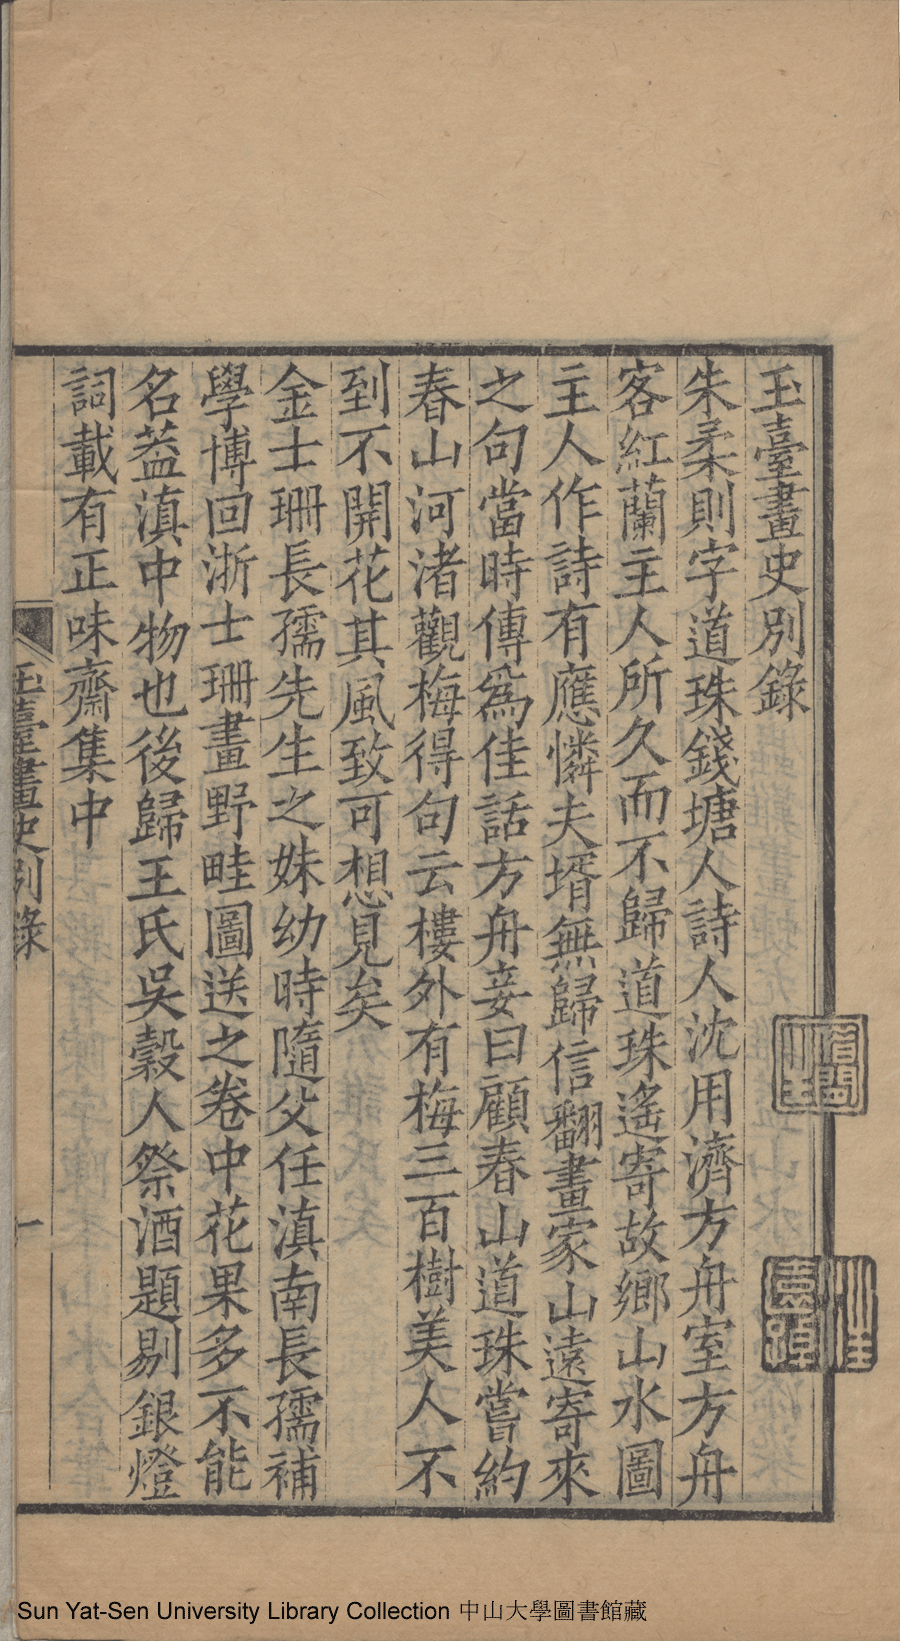 玉臺畫史別錄
朱柔則字道珠錢塘人詩人沈用濟方舟室方舟
客紅蘭主人所久而不歸道珠遙寄故鄉山水圖
主人作詩有應憐夫壻無歸信翻畫家山遠寄來
之句當時傳爲佳話方舟妾曰顧春山道珠嘗約
春山河渚觀梅得句云樓外有梅三百樹美人不
到不開花其風致可想見矣
金士珊長孺先生之妹幼時隨父任滇南長孺補
學博回浙士珊畫野畦圖送之卷中花果多不能
名葢滇中物也後歸王氏吳穀人祭酒題剔銀燈
詞載有正味齋集中
玉臺畫史別錄
一
Sun Yat-Sen University Library Collection 中山大學圖書館藏